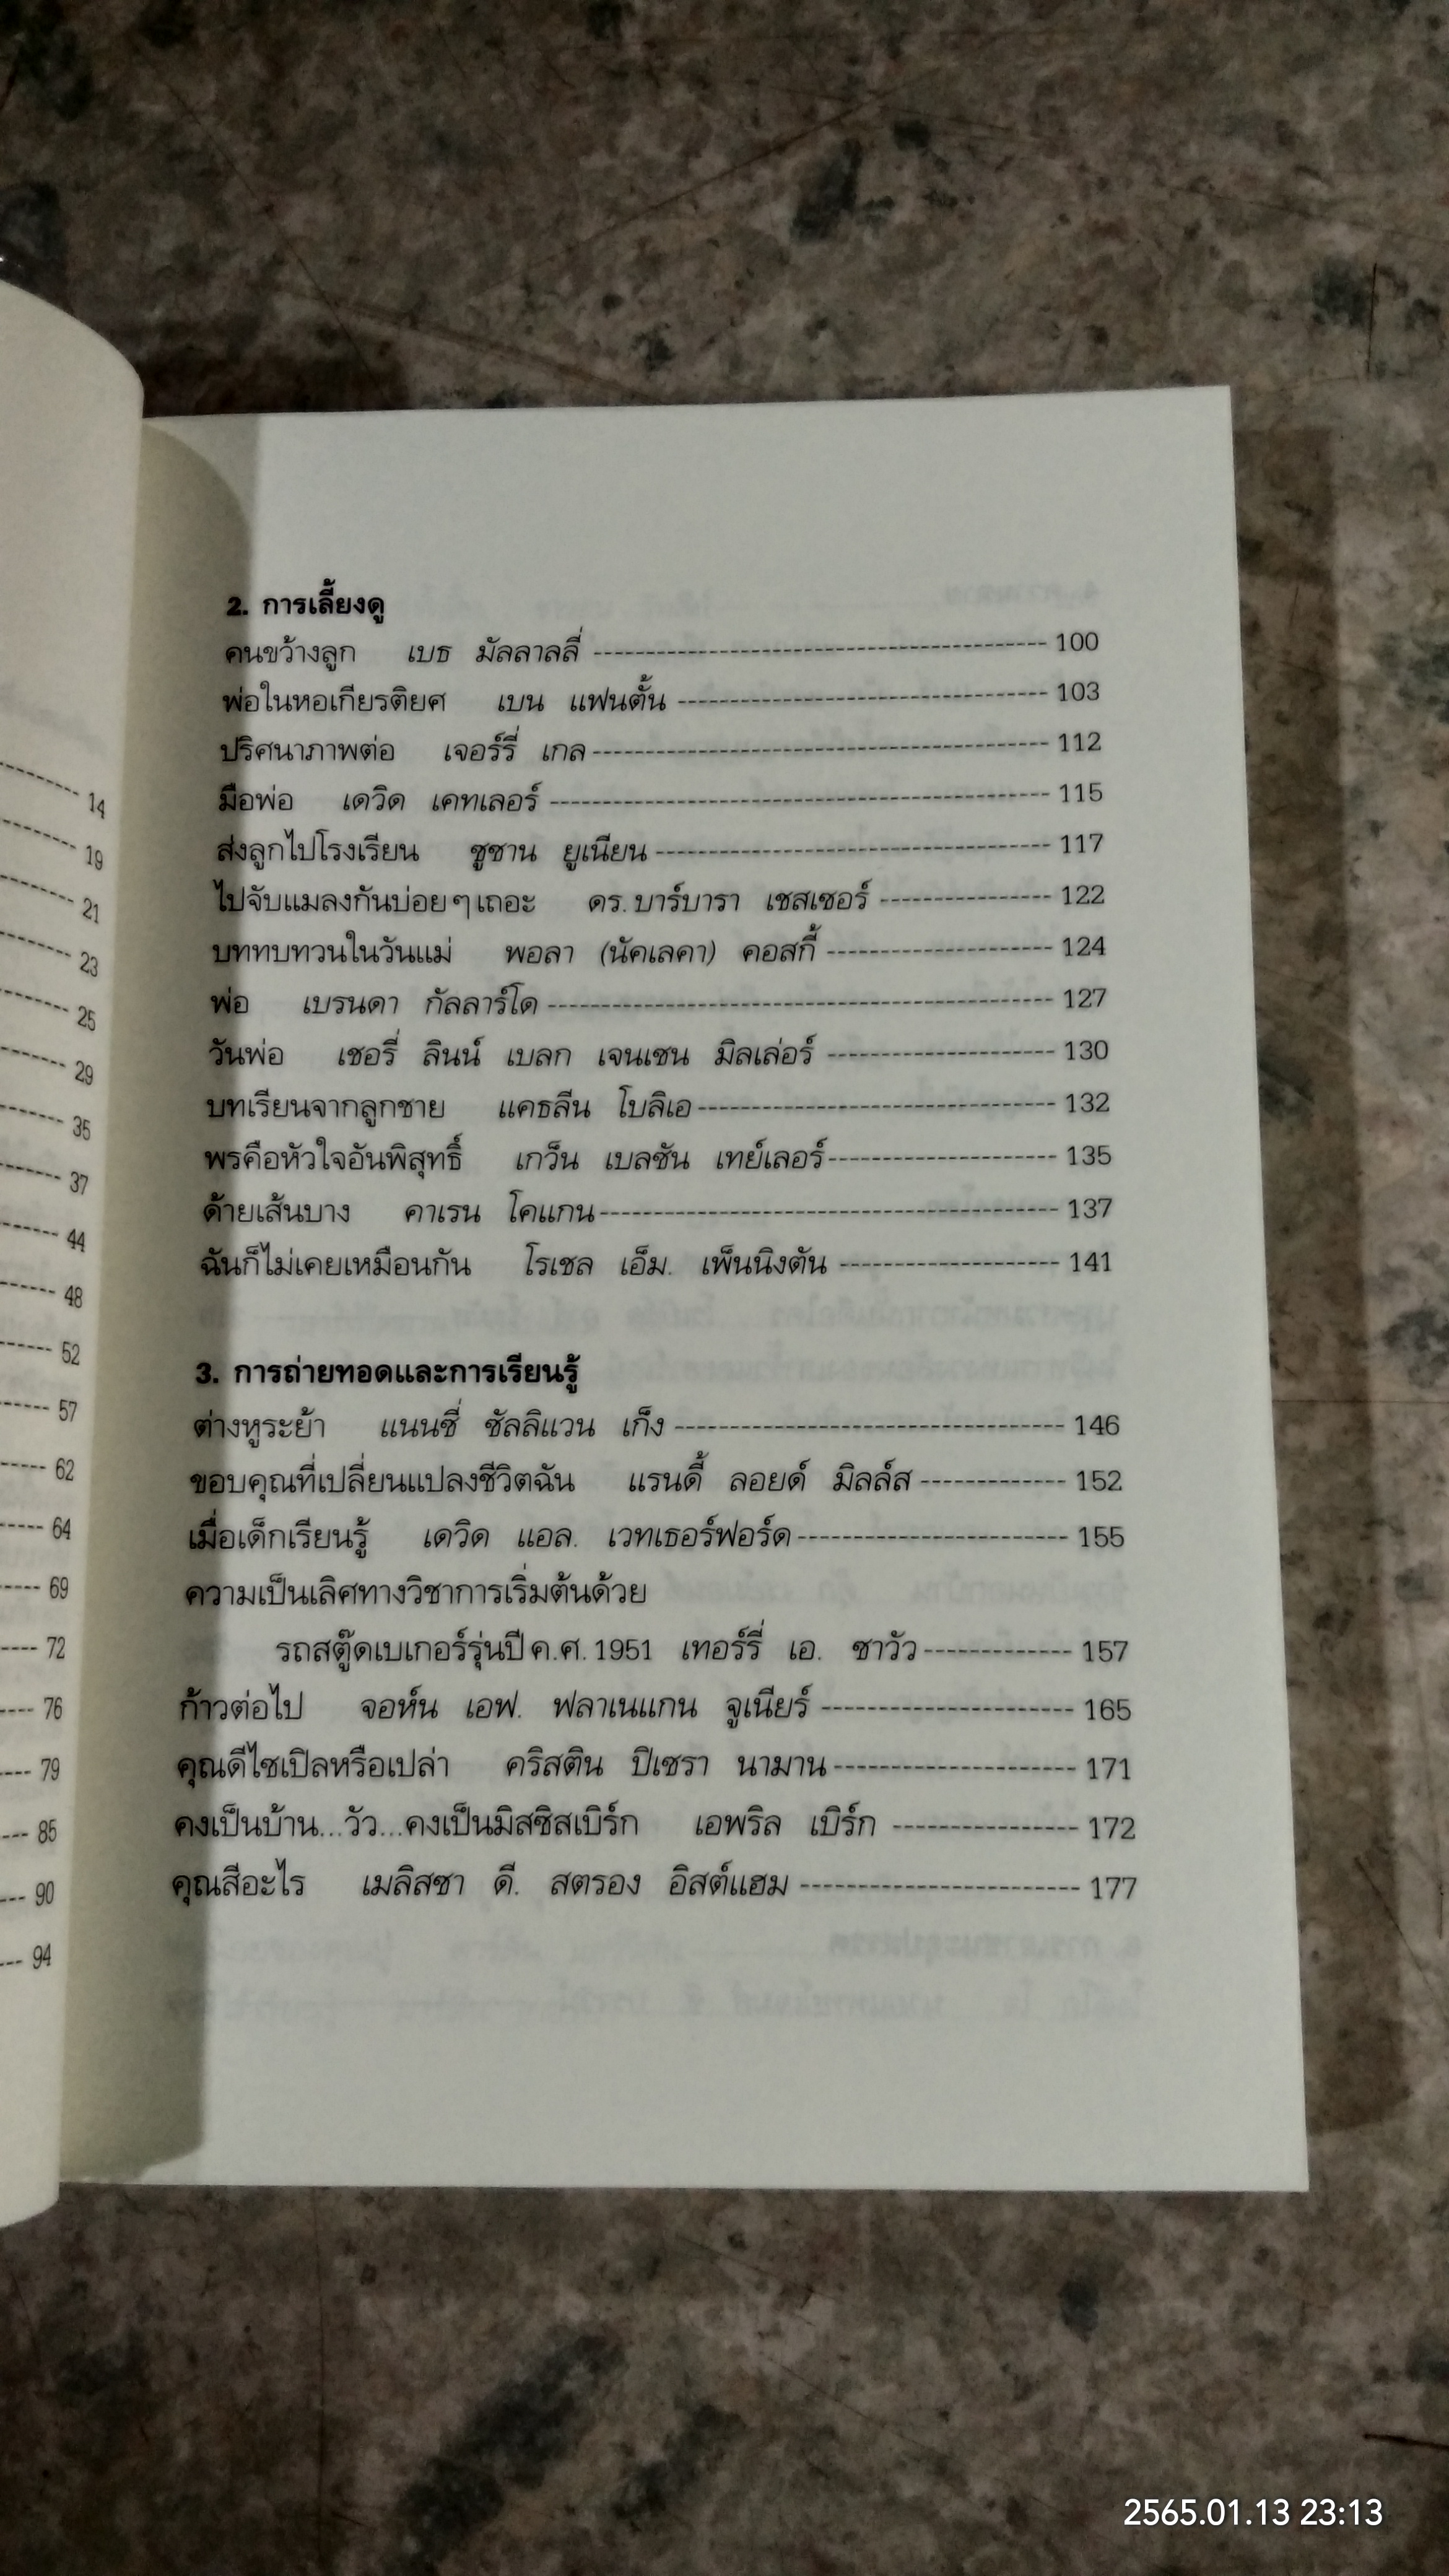 14
19
21
23
25
29
35
37
44
48
52
57
62
64
69
72
76
79
85
90
94
2. การเลี้ยงดู
คนขว้างลูก เบธ มัลลาลลี่ 100
พ่อในหอเกียรติยศ เบน แฟนตั้น 103
ปริศนาภาพต่อ เจอร์รี่ เกล 112
มือพ่อ เดวิด เคทเลอร์ 115
ส่งลูกไปโรงเรียน ซูซาน ยูเนียน 117
ไปจับแมลงกันบ่อยๆเถอะ ดร. บาร์บารา เชสเซอร์ 122
บททบทวนในวันแม่ พอลา (นัคเลคา) คอสกี้ 124
พ่อ เบรนดา กัลลาร์โด 127
วันพ่อ เชอรี่ ลินน์ เบลก เจนเซน มิลเล่อร์ 130
บทเรียนจากลูกชาย แคธลีน โบลิเอ 132
พรคือหัวใจอันพิสุทธิ์ เกว็น เบลซัน เทย์เลอร์ 135
ด้ายเส้นบาง คาเรน โคแกน 137
ฉันก็ไม่เคยเหมือนกัน โรเชล เอ็ม. เพ็นนิงตัน 141
3. การถ่ายทอดและการเรียนรู้
ต่างหูระย้า แนนซี่ ซัลลิแวน เก็ง 146
ขอบคุณที่เปลี่ยนแปลงชีวิตฉัน แรนดี้ ลอยด์ มิลล์ส 152
เมื่อเด็กเรียนรู้ เดวิด แอล. เวทเธอร์ฟอร์ด 155
ความเป็นเลิศทางวิชาการเริ่มต้นด้วย
รถสตู๊ดเบเกอร์รุ่นปี ค.ศ. 1951 เทอร์รี่ เอ. ซาวัว 157
ก้าวต่อไป จอห์น เอฟ. ฟลาเนแกน จูเนียร์ 165
คุณดีไซเปิลหรือเปล่า คริสติน ปิเซรา นามาน 171
คงเป็นบ้าน...วัว...คงเป็นมิสซิสเบิร์ก เอพริล เบิร์ก 172
คุณสีอะไร เมลิสซา ดี. สตรอง อิสต์แฮม 177
2565.01.13 23:13